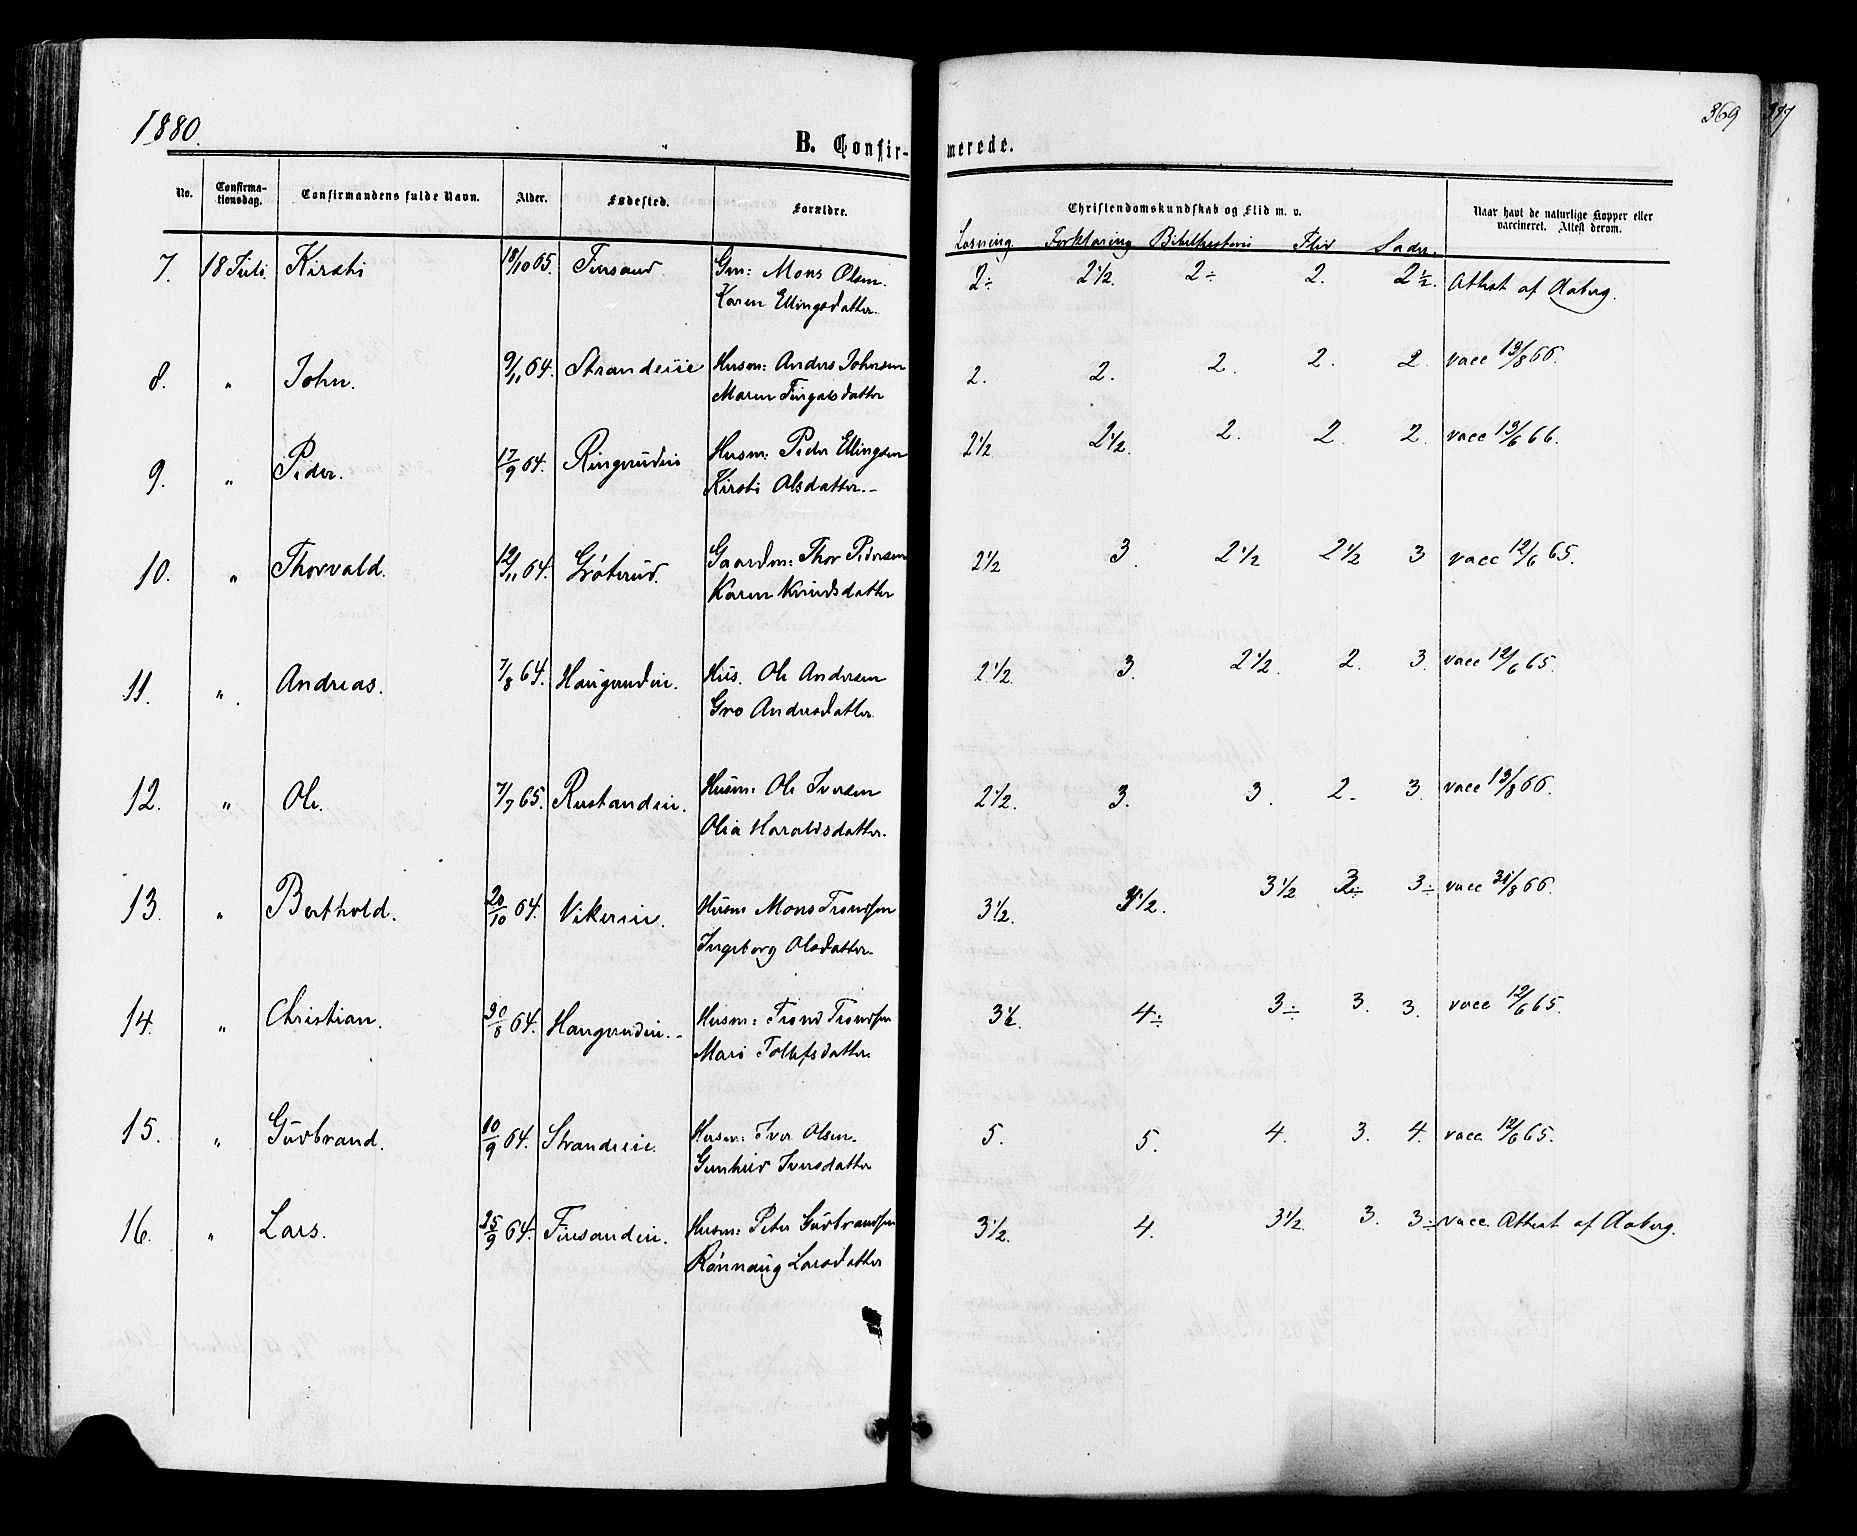 1880.
369 347
B. Confirmerede.
No. Confirmationsdag. Confirmandens fulde Navn. Alder. Fødested. Forældre. Christendomskundskab og Flid m. v. Naar havt de naturlige Kopper eller vaccineret. Attest derom.
Læsning Forklaring Bibelhistorie Flid Sæder.
7. 18 Juli. Kirsti 18/10 65. Finsand. Gm: Mons Olsen. 2÷ 2 1/2. 2÷ 2. 2 1/2. Attest af Aaberg.
Karen Ellingsdatter.
8. " John. 9/11 64. Strandeiie Husm: Anders Johnsen 2. 2. 2. 2. 2. vacc 13/8 66.
Maren Fingalsdatter
9. " Peder. 17/9 64. Ringerudeie Husm: Peder Ellingsen 2 1/2 2 1/2. 2. 2. 2. vacc 13/6 66.
Kirsti Olsdatter.-
10. " Thorvald. 12/11 64. Grøterud. Gaardm: Thor Pedersen 2 1/2 3. 2 1/2 2 1/2 3 vacc 12/6 65.
Karen Knudsdatter
11. " Andreas. 7/8 64. Haugerudeie. Hus. Ole Andersen 2 1/2. 3. 2 1/2. 2. 3. vacc 12/6 65.
Gro Andersdatter.
12. " Ole. 7/7 65. Rustandeie. Husm: Ole Iversen 2 1/2. 3. 3. 2- 3. vacc 13/8 66.
Olia Haraldsdatter.
13. " Berthold. 20/10 64. Vikereie. Husm Mons Trondsen 3 1/2. 3 1/2 3÷ vacc 31/8 66.
Ingeborg Olsdatter.
14. " Christian. 30/8 64. Haugerudeie.- Husm: Trond Trondsen 3 1/2. 4÷ 3÷ 3. 3. vacc 12/6 65.
Mari Tollefsdatter.
15. " Gudbrand. 10/9 64. Strandeeie. Husm: Iver Olsen. 5. 5. 4. 3. 4. vacc 12/6 65.
Gunhild Iversdatter
16. " Lars. 25/9 64. Finsandeie. Husm: Peter Gudbrandsen 3 1/2. 4. 3 1/2. 3. 3÷ vacc. Attest af Aaberg.
Rønnaug Larsdatter